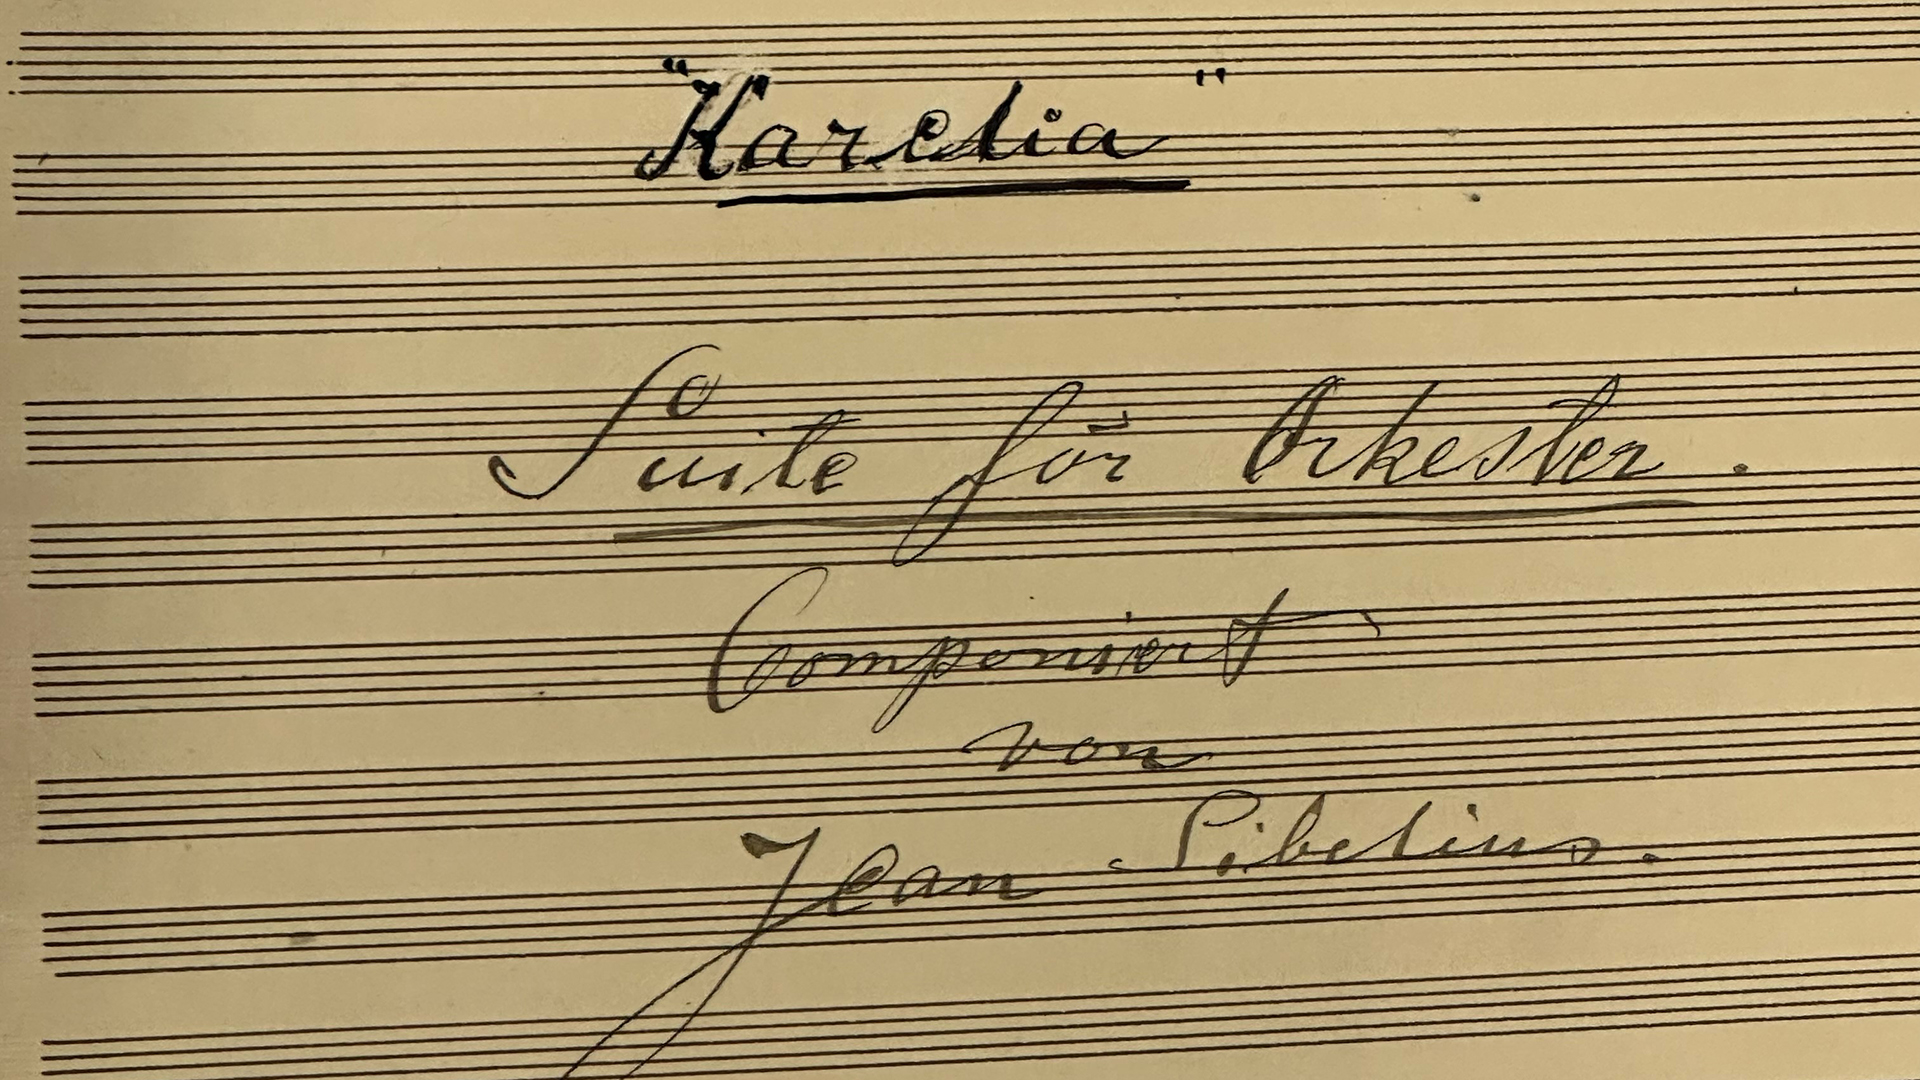 "Karelia"
Suite för Orkester.
Componiert
von
Jean Sibelius.